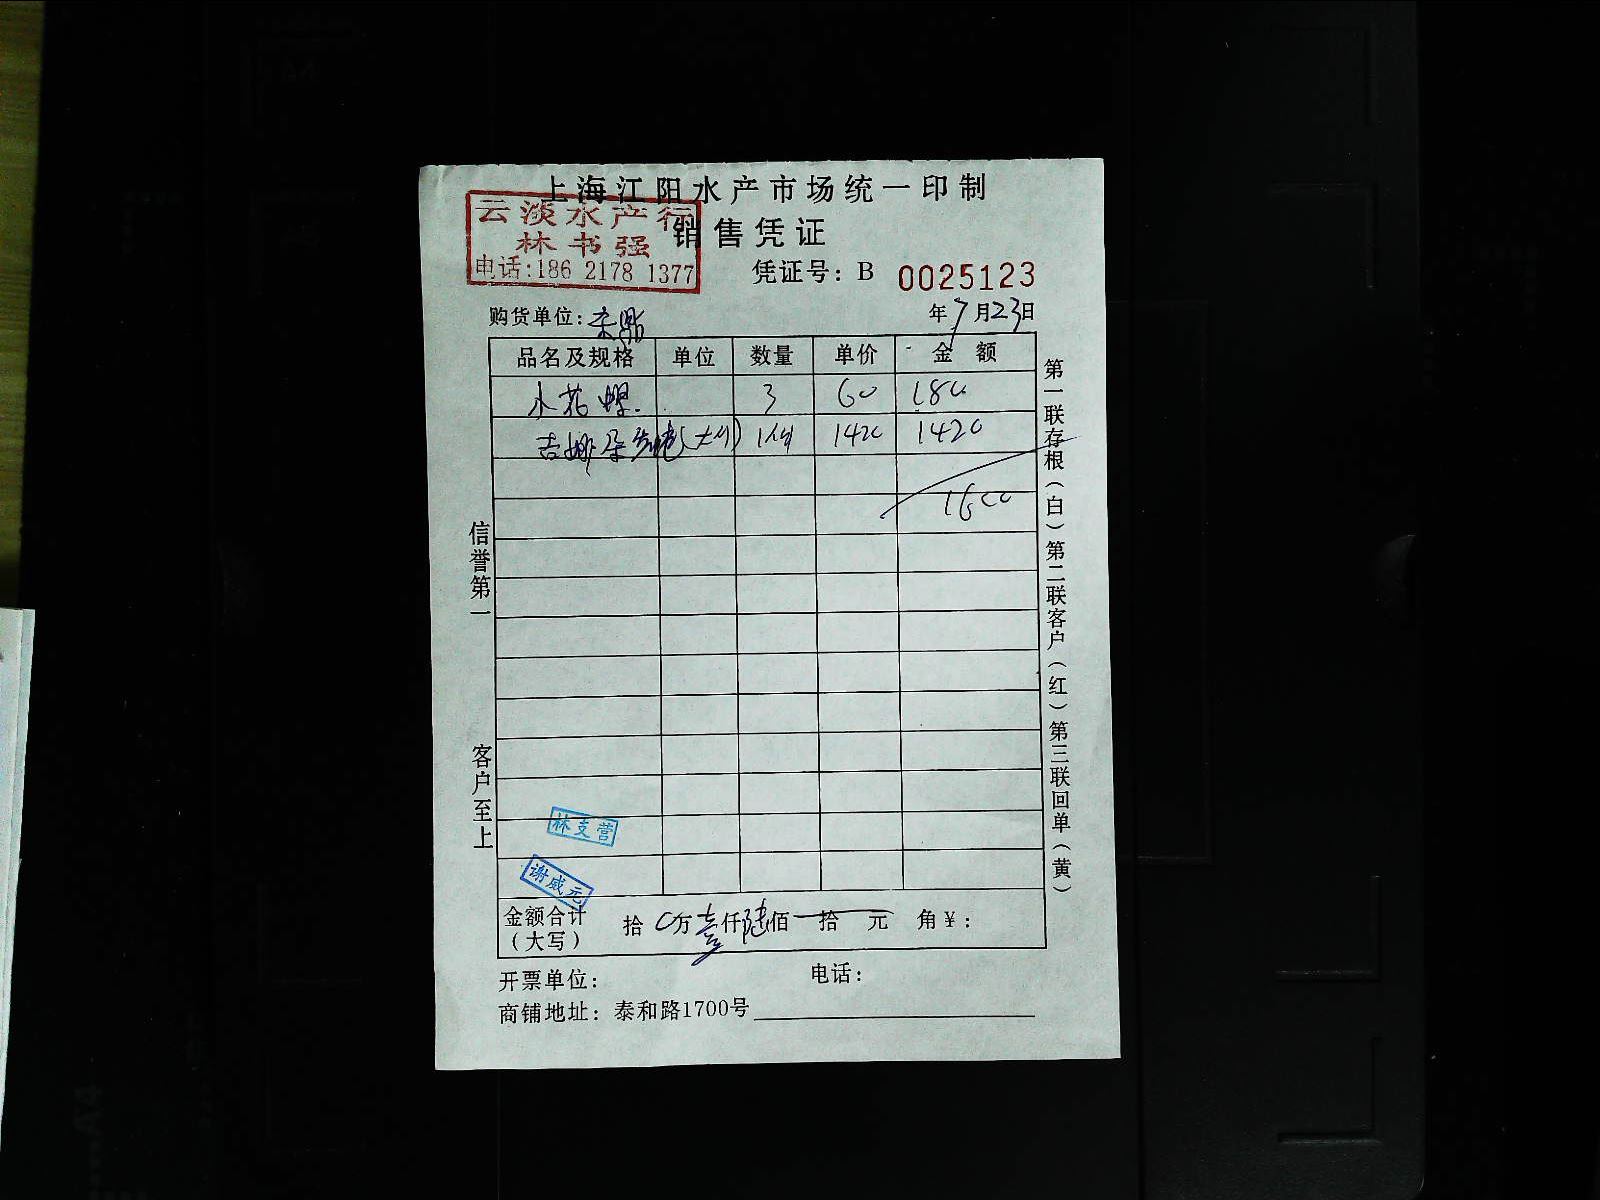 上海江阳水产市场统一印制
云淡水产行
林书强
电话:186 2178 1377
销售凭证
凭证号: B 0025123
购货单位:
年7月23日
品名及规格 单位 数量 单价 金额
小花螺. 3 60 180
吉娜朵 (大的) 1份 1420 1420
1600
信誉第一
客户至上
第一联存根(白)第二联客户(红)第三联回单(黄)
林支营
谢威元
金额合计
(大写)
拾 0万壹仟陆佰 拾 元 角¥:
开票单位: 电话:
商铺地址: 泰和路1700号